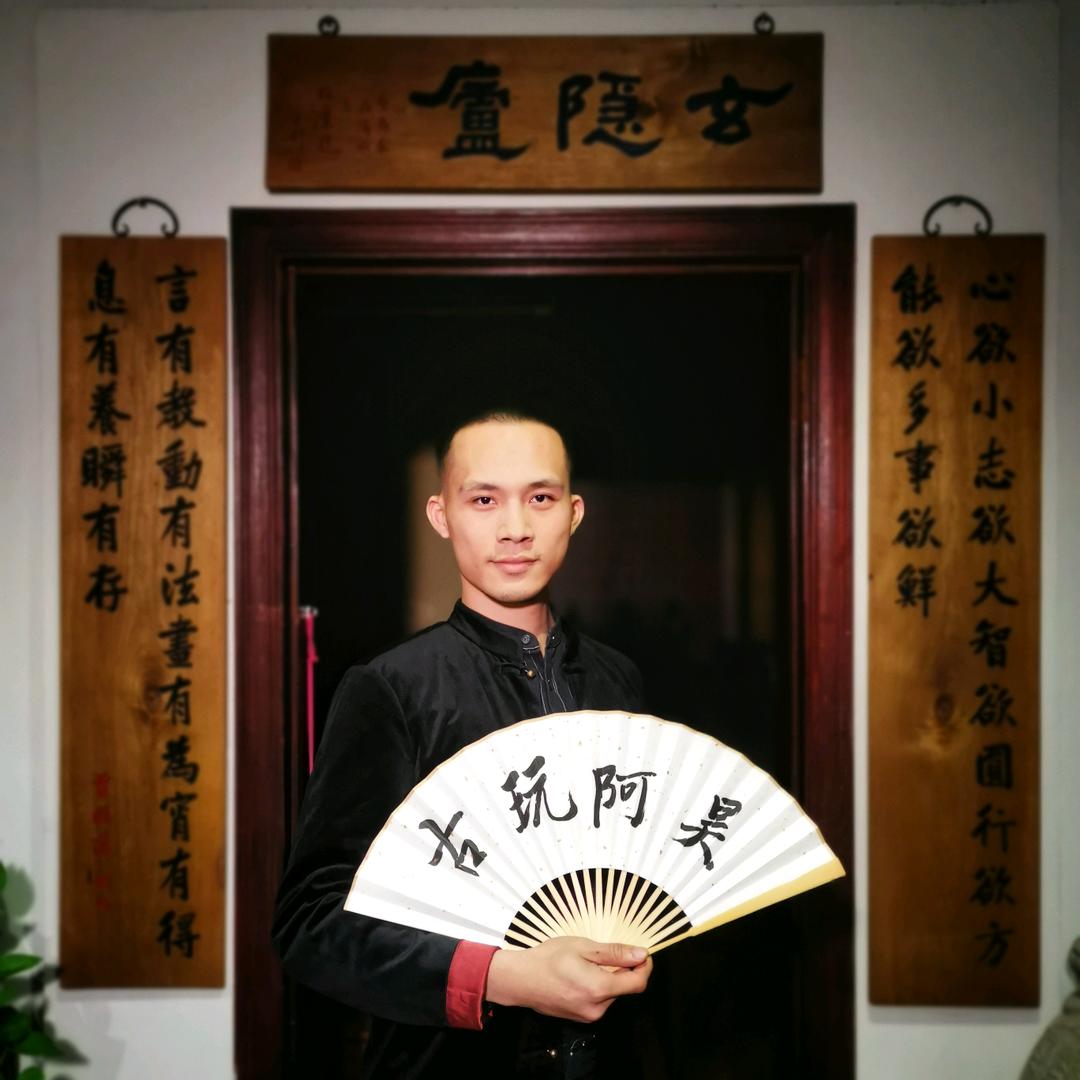 玄隐廬
心欲小志欲大智欲圓行欲方
能欲多事欲鮮
言有教動有法晝有為宵有得
息有養瞬有存
昊阿玩古